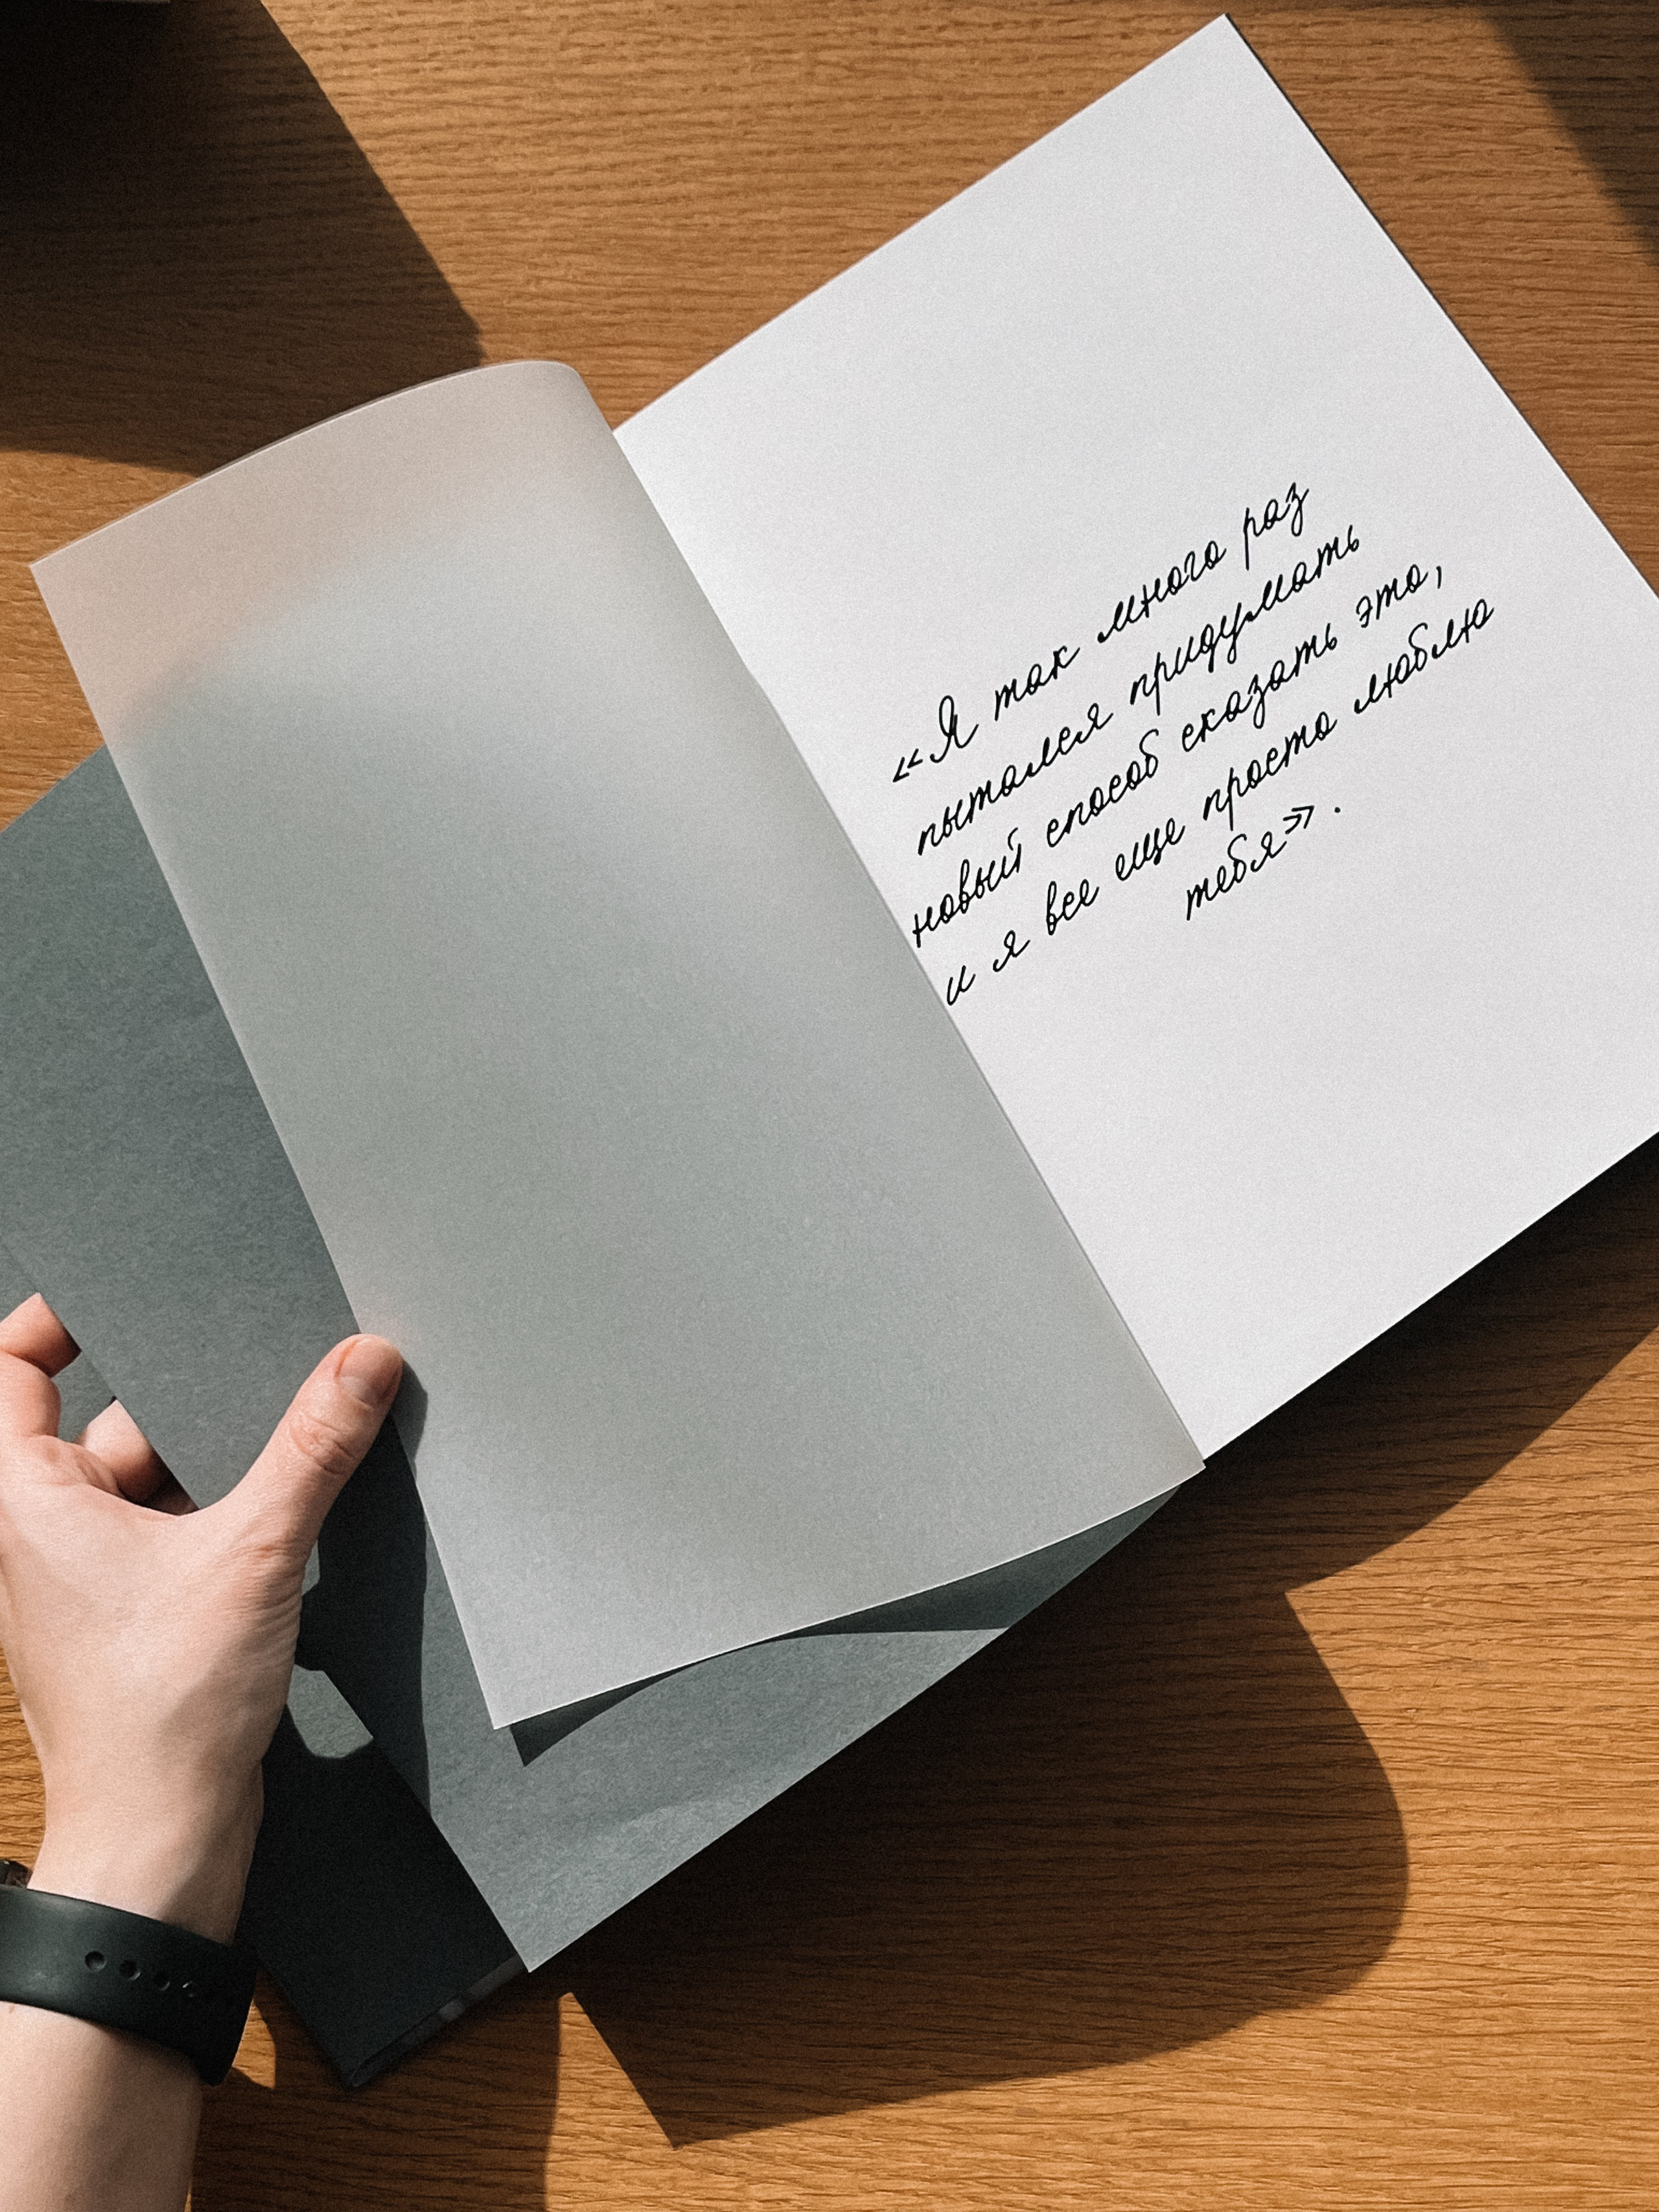 «Я так много раз
пытался придумать
новый способ сказать это,
и я все еще просто люблю
тебя».